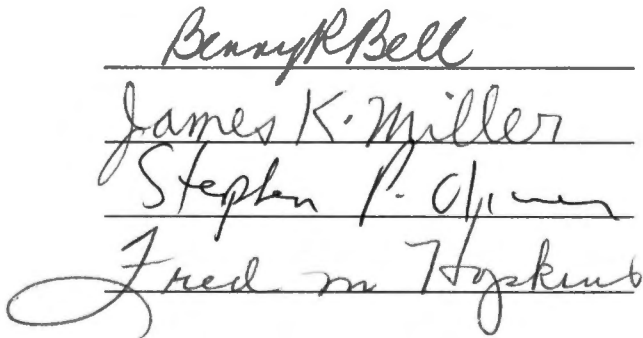 Benny R Bell
James K. Miller
Stephen P.
Fred m Hopkins